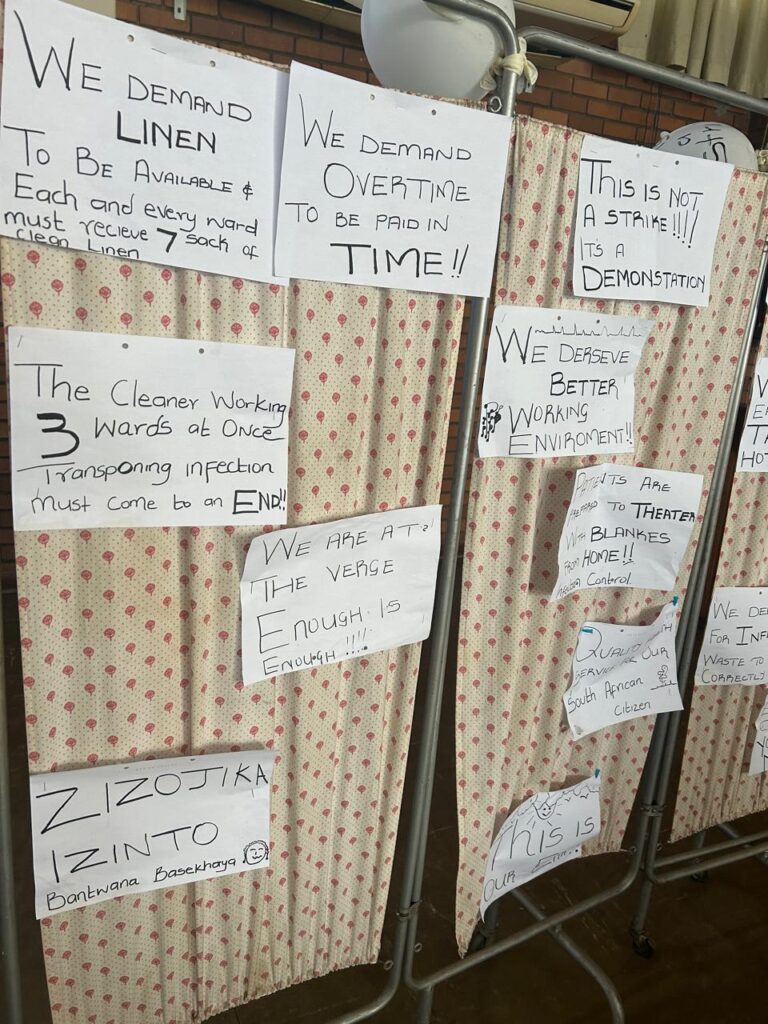 WE DEMAND
LINEN
TO BE AVAILABLE &
Each and every ward
must recieve 7 sack of
clean Linen
WE DEMAND
OVERTIME
TO BE PAID IN
TIME!!
The Cleaner Working
3 Wards at Once
Transponing infection
Must come to an END!!
WE ARE AT
THE VERGE
ENOUGH IS
ENOUGH!!!!
ZIZOJIKA
IZINTO
Bantwana Basekhaya
THIS IS NOT
A STRIKE!!!!
ITS A
DEMONSTATION
WE DERSEVE
BETTER
WORKING
ENVIROMENT!!
PATIENTS ARE
TO THEATER
WITH BLANKES
FROM HOME!!
Infection Control
SERVICE
OUR
South African
Citizen
This is
OUR
WE
FOR
WASTE TO
CORRECTLY